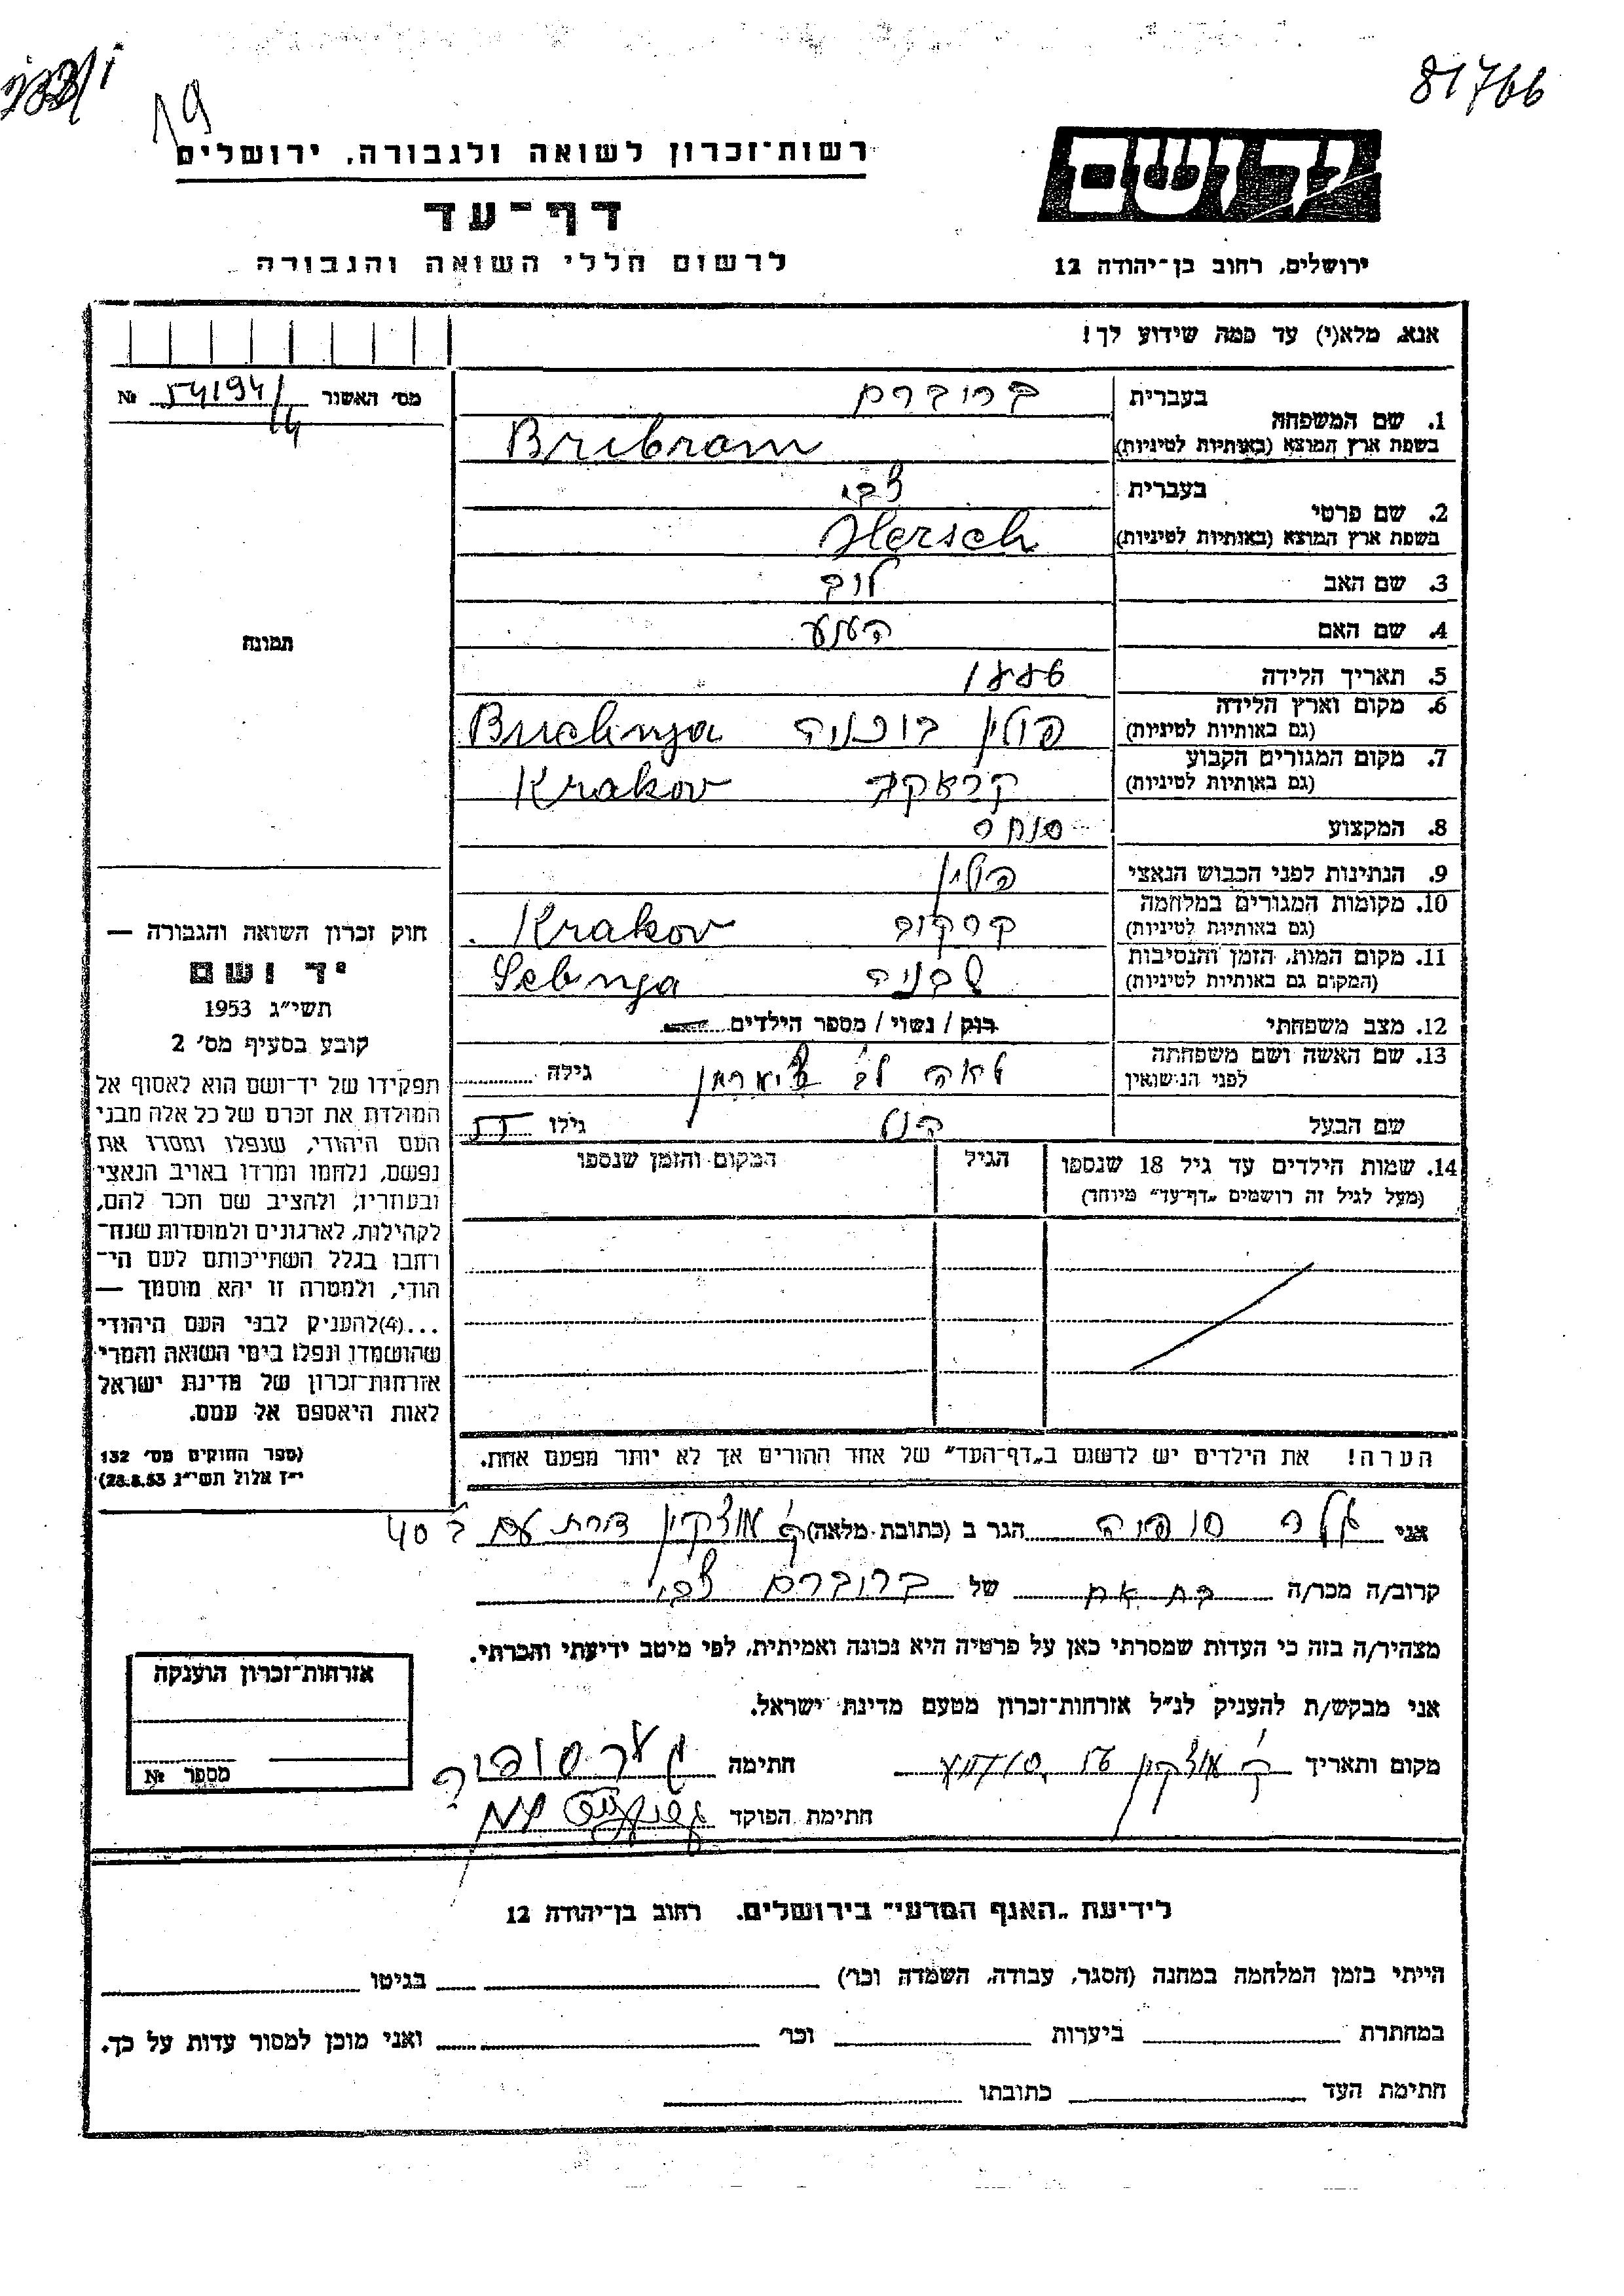 81766
19
יד ושם
רשות־זכרון לשואה ולגבורה, ירושלים
דף־עד
לרשום חללי השואה והגבורה
ירושלים, רחוב בן־יהודה 12
אנא, מלא(י) עד כמה שידוע לך!
מס' האשור 54194/14 №
1. שם המשפחה
בעברית
בשפת ארץ המוצא (באותיות לטיניות) Bribram
2. שם פרטי
בעברית צבי
בשפת ארץ המוצא (באותיות לטיניות) Hersch
3. שם האב לוב
4. שם האם
5. תאריך הלידה 1888
6. מקום וארץ הלידה
(גם באותיות לטיניות) פולין בוכניה Buchnya
7. מקום המגורים הקבוע
(גם באותיות לטיניות) קראקוב Krakov
8. המקצוע סוחר
9. הנתינות לפני הכבוש הנאצי פולין
10. מקומות המגורים במלחמה
(גם באותיות לטיניות) קרקוב Krakov
11. מקום המות, הזמן והנסיבות
(המקום גם באותיות לטיניות) שבניה Sebnya
12. מצב משפחתי רוק / נשוי / מספר הילדים
13. שם האשה ושם משפחתה
לפני הנישואין לאה לב גילה
שם הבעל גילו 55
14. שמות הילדים עד גיל 18 שנספו
(מעל לגיל זה רושמים „דף־עד" מיוחד)
הגיל
המקום והזמן שנספו
תמונה
חוק זכרון השואה והגבורה —
יד ושם
תשי"ג 1953
קובע בסעיף מס' 2
תפקידו של יד־ושם הוא לאסוף אל
המולדת את זכרם של כל אלה מבני
העם היהודי, שנפלו ומסרו את
נפשם, נלחמו ומרדו באויב הנאצי
ובעוזריו, ולהציב שם וזכר להם,
לקהילות, לארגונים ולמוסדות שנח־
רחבו בגלל השתייכותם לעם הי־
הודי, ולמטרה זו יהא מוסמך —
...(4) להעניק לבני העם היהודי
שהושמדו ונפלו בימי השואה והמרי
אזרחות־זכרון של מדינת ישראל
לאות היאספם אל עמם.
(ספר החוקים מס' 132
י"ז אלול תשי"ג 28.8.53)
הערה! את הילדים יש לרשום ב„דף־העד" של אחד ההורים אך לא יותר מפעם אחת.
אני הגר ב (כתובת מלאה) ק. מוצקין
קרוב/ה מכר/ה של צבי
מצהיר/ה בזה כי העדות שמסרתי כאן על פרטיה היא נכונה ואמיתית, לפי מיטב ידיעתי והכרתי.
אני מבקש/ת להעניק לנ"ל אזרחות־זכרון מטעם מדינת ישראל.
מקום ותאריך ק. מוצקין חתימה
חתימת הפוקד
אזרחות־זכרון הוענקה
מספר №
לידיעת „האגף המדעי" בירושלים, רחוב בן־יהודה 12
הייתי בזמן המלחמה במחנה (הסגר, עבודה, השמדה וכו') בגיטו
במחתרת ביערות וכו' ואני מוכן למסור עדות על כך.
חתימת העד כתובתו